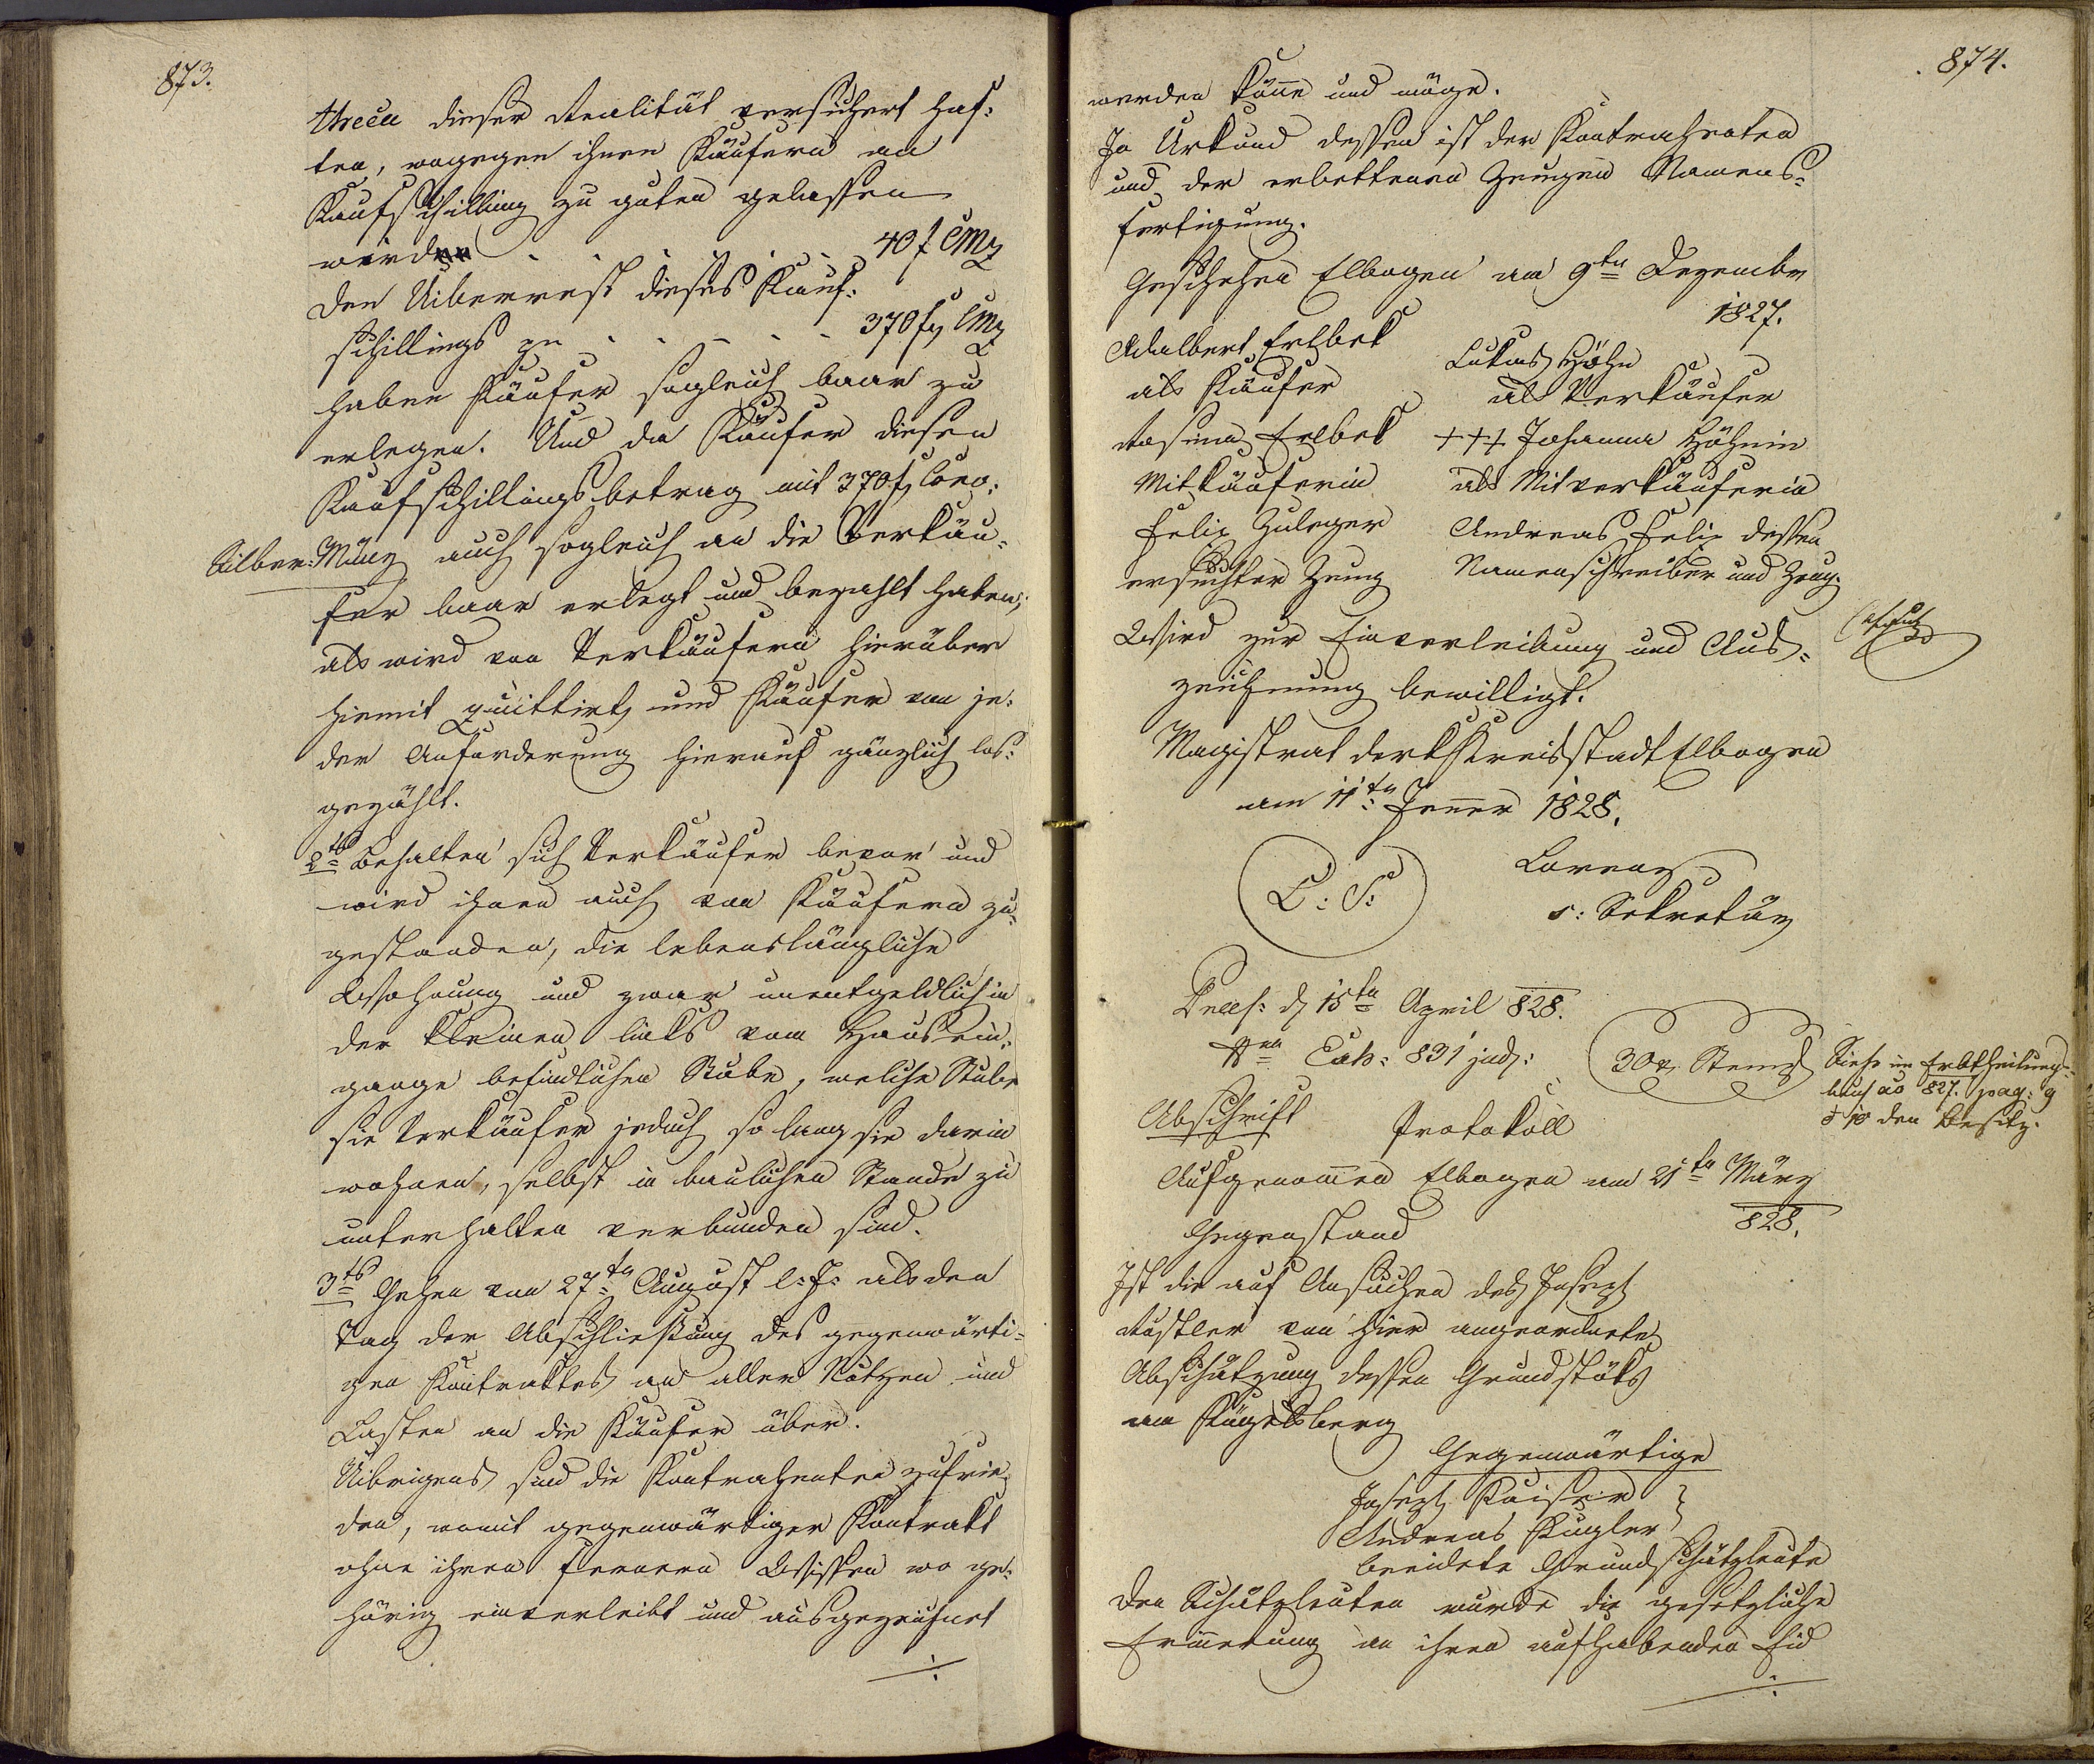 873.
threcu dieser Realität versichert haf:
ten, wogegen ihnen Käufern am
Kaufschilling zu guten gelassen
wird . . . . . . 40 f CMz
Den Uiberrest dieses Kauf:
schillings pr . . . . . 370 f CMz
haben Käufer sogleich baar zu
erlegen. Und da Käufer diesen
Kaufschillingsbetrag mit 370 f Conv:
Silber: Münz auch sogleich an die Verkäu:
fer baar erlegt und bezahlt haben;
als wird von Verkäufern hierüber
hiemit quittirt, und Käufer von je:
der Anforderung hierauf gänzlich los:
gezählt.
2tens Behalten sich Verkäufer bevor und
wird ihnen auch von Käufern zu:
gestanden, die lebenslängliche
Wohnung und zwar unentgeldlich in
der kleinen links vom Hausein:
gange befindlichen Stube, welche Stube
sie Verkäufer jedoch so lang sie darin
wohnen, selbst in baulichen Stande zu
unterhalten verbunden sind.
3tens Gehen vom 27ten August l: J: als den
Tag der Abschließung des gegenwärti:
gen Kontraktes an aller Nutzen und
Lasten an die Käufer über.
Uibrigens sind die Kontrahenten zufrie:
den, womit gegenwärtiger Kontrakt
ohne ihren fernern Wissen wo ge:
hörig einverleibt und ausgezeichnet
./.
874.
werden könne und möge.
In Urkund dessen ist der Kontrahenten
und der erbettenen Zeugen Namens:
fertigung.
Geschehen Elbogen am 9ten Dezember
1827.
Adalbert Erlbek Lukas Höhn
als Käufer als Verkäufer
Rosina Erlbek +++ Johanna Höhnin
Mitkäuferin als Mitverkäuferin
Felix Zuleger Andreas Felix dessen
ersuchter Zeug Namenschreiber und Zeug.
Wird zur Einverleibung und Aus:
zeichnung bewilligt.
Magistrat der K Kreisstadt Elbogen
am 11ten Jenner 1828.
L: S: Lorenz
s: Sekretär
Praes: d 15ten April 828.
Nro Exh: 831 jud:
30 x Stempl
Siehe im Erbtheilungs:
buch ao 827. pag: 9
den Besitz.
Abschrift Protokoll
Aufgenommen Elbogen am 21ten März
828.
Gegenstand
Ist die auf Ansuchen des Joseph
Rustler von hier angeordnete
Abschätzung dessen Grundstüks
am Kügelsberg
Gegenwärtige
Joseph Kaiser }
Andreas Kugler }
beeidete Grundschätzleute
Den Schätzleuten wurde die gesetzliche
Erinnerung an ihren aufhabenden Eid
./.